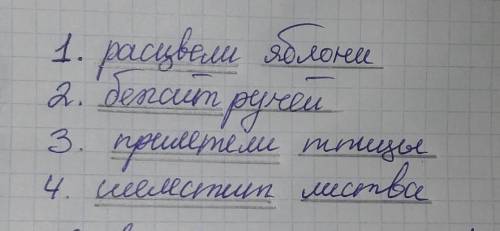 1. расцвели яблони
2. бежит ручей
3. прилетели птицы
4. шелестит листва